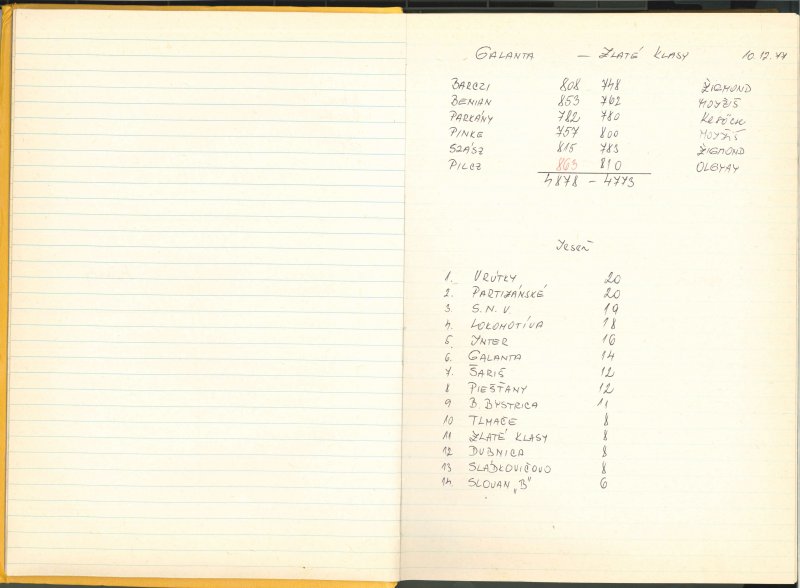 GALANTA – ZLATÉ KLASY 10.12.77
BARCZI 808 748 ŽIGMOND
BENIAN 853 762 MOYŽIŠ
PARKÁNY 782 780
PINKE 757 800 MOYŽIŠ
SZÁSZ 815 783 ŽIGMOND
PILCZ 863 810 OLGYAY
4878 – 4773
JESEŇ
1. VRÚTKY 20
2. PARTIZÁNSKÉ 20
3. S.N.V 19
4. LOKOMOTÍVA 18
5. INTER 16
6. GALANTA 14
7. ŠARIŠ 12
8 PIEŠŤANY 12
9 B. BYSTRICA 11
10 TLMAČE 8
11 ZLATÉ KLASY 8
12 DUBNICA 8
13 SLÁDKOVIČOVO 8
14 SLOVAN „B" 6